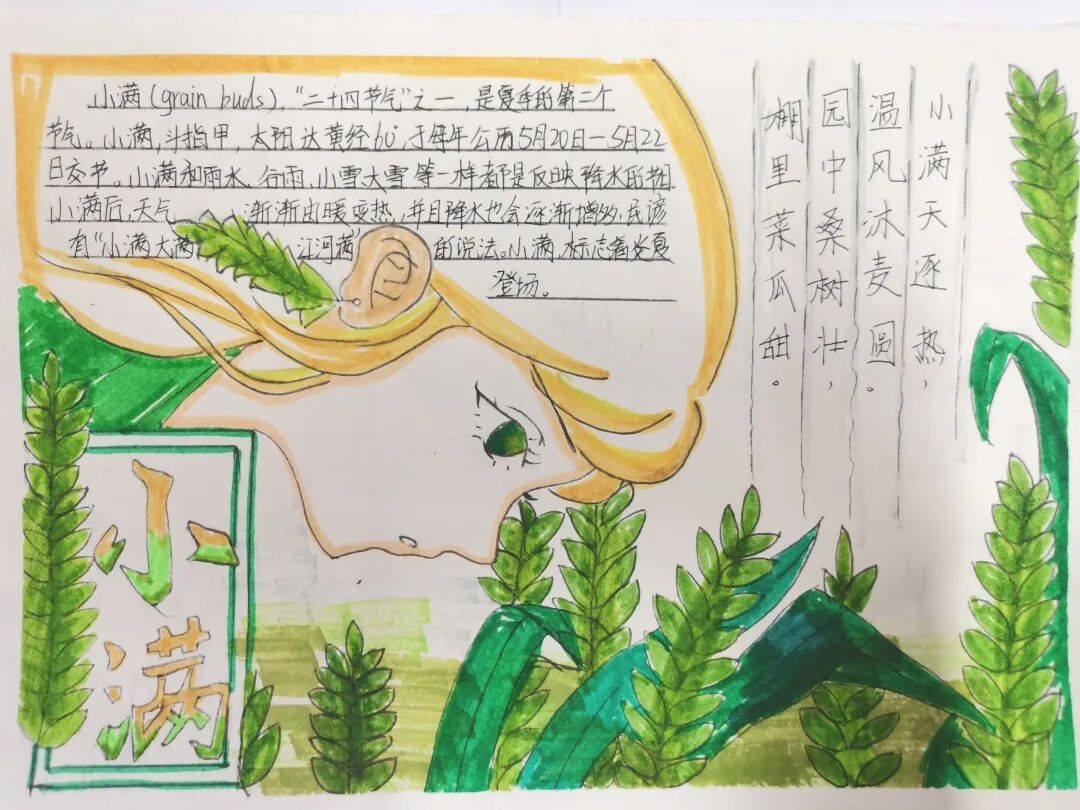 小满(grain buds),“二十四节气”之一,是夏季的第二个
节气。小满,斗指甲,太阳达黄经60°,于每年公历5月20日—5月22
日交节。小满和雨水、谷雨、小雪、大雪等一样都是反映降水的节气。
小满后,天气渐渐由暖变热,并且降水也会逐渐增多,民谚
有“小满大满江河满”的说法。小满,标志着炎夏
登场。
小满天逐热,
温风沐麦圆。
园中桑树壮,
棚里菜瓜甜。
小满